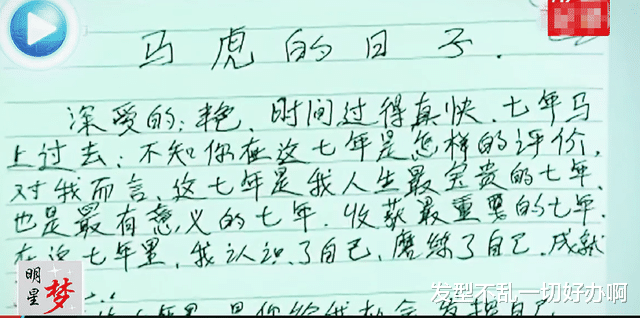 马虎的日子.
深爱的:艳、时间过得真快、七年马
上过去;不知你在这七年是怎样的评价,
对我而言、这七年是我人生最宝贵的七年、
也是最有意义的七年.收获最重要的七年.
在这七年里、我认识了自己、磨练了自己、成就
是你给我机会
明星
梦
发型不乱一切好办啊